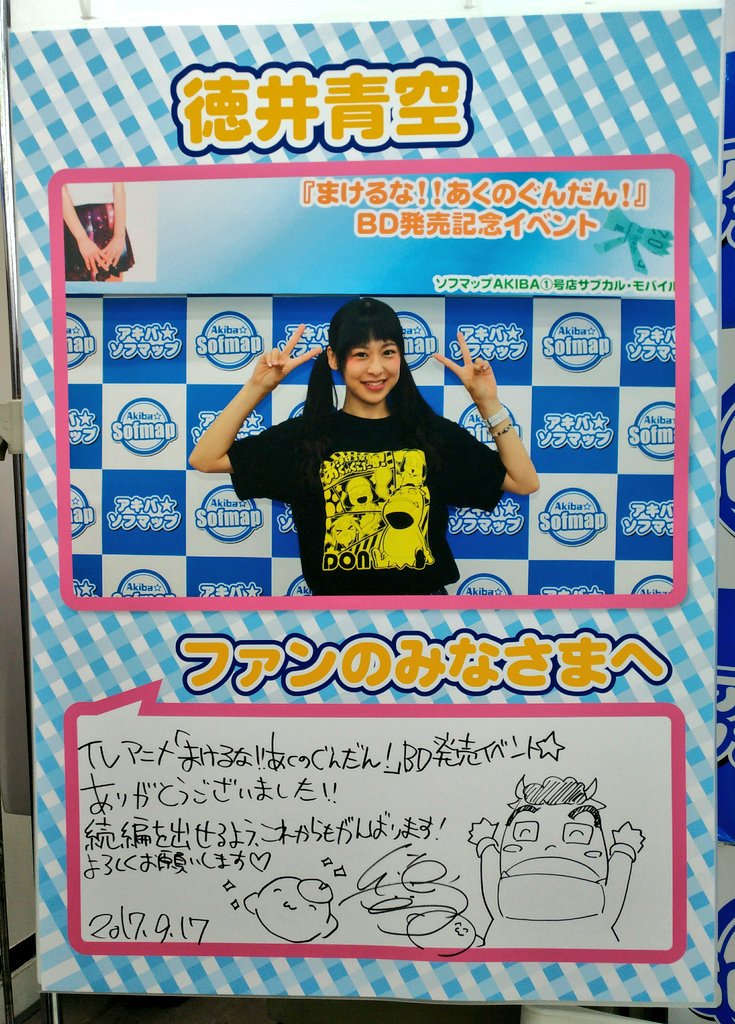 徳井青空
『まけるな!!あくのぐんだん!』
BD発売記念イベント
ソフマップAKIBA①号店サブカル・モバイル
Akiba☆
Sofmap
アキバ☆
ソフマップ
DON
ファンのみなさまへ
TVアニメ「まけるな!!あくのぐんだん!」BD発売イベント☆
ありがとうございました!!
続編を出せるよう、これからもがんばります!
よろしくお願いします♡
2017.9.17